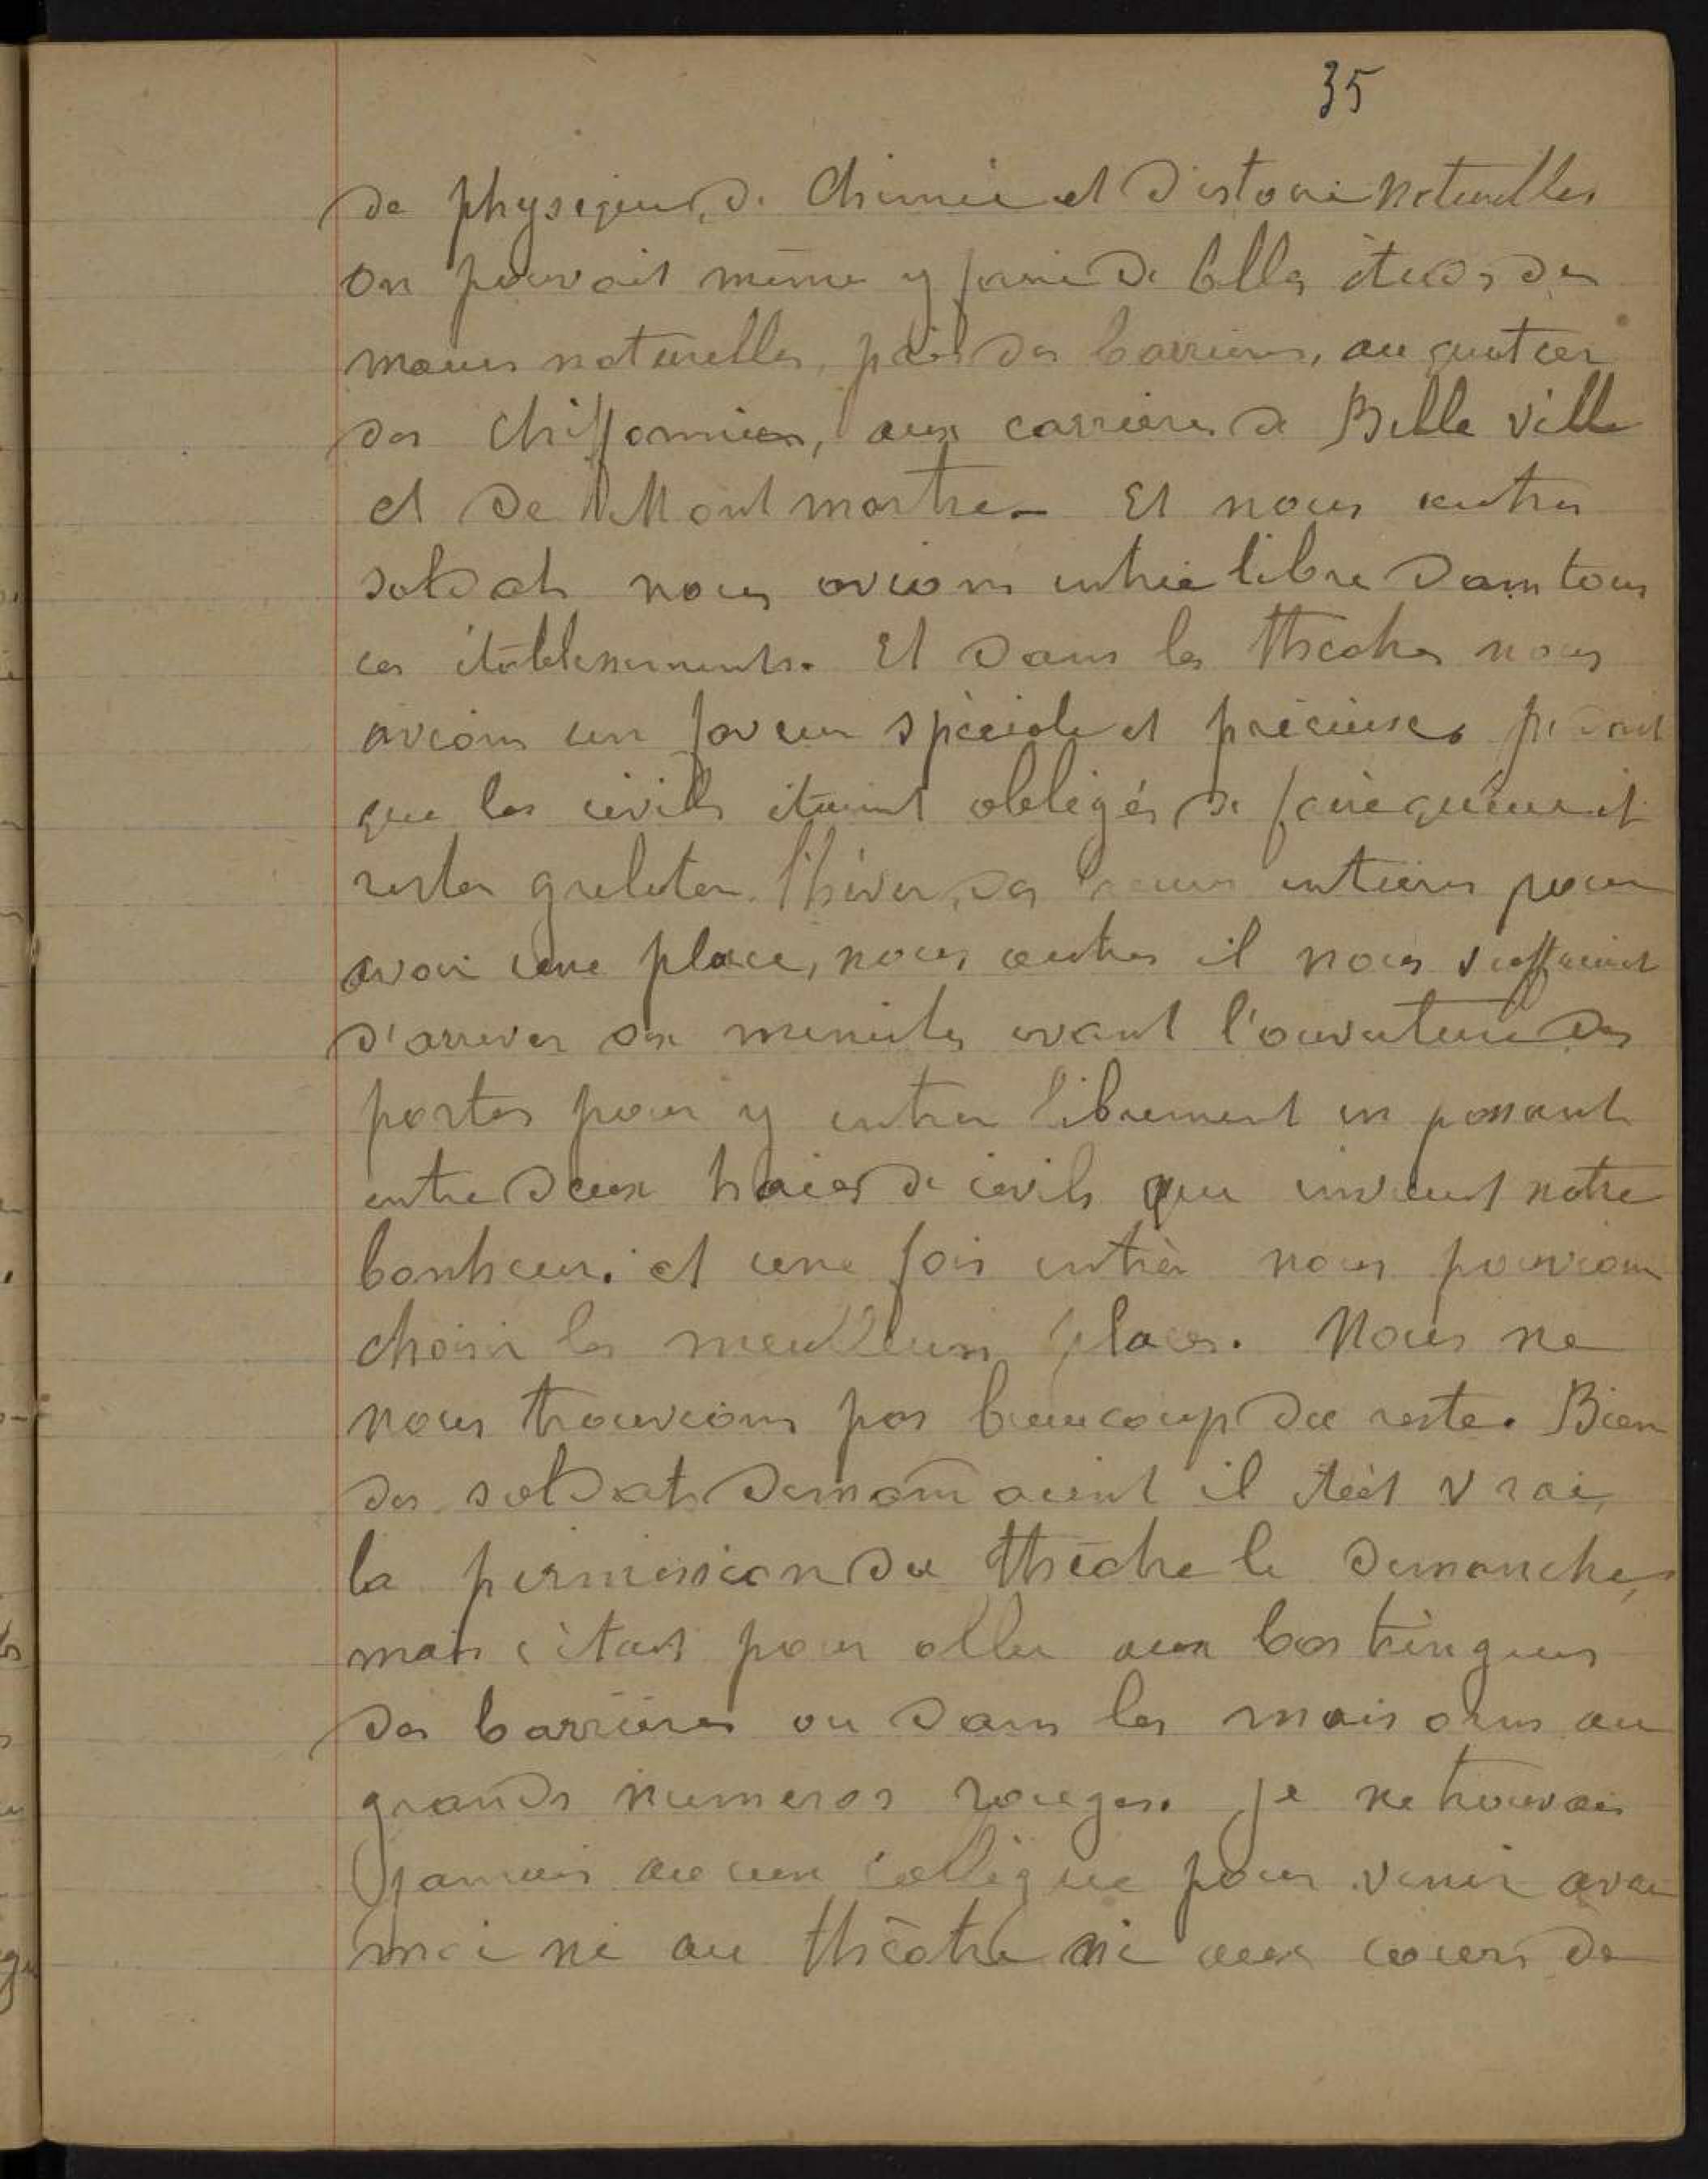 35
de physique, de Chimie et d'istoire naturelles
on pouvait même y faire de belles études des
mœurs naturelles, près des barrières, au quatier
des chiffonniers, aux carrières de Belle ville
et de Mont martre. Et nous autres
soldats nous avions entrée libre dans tous
ces établessements. Et dans les théatres nous
avions un faveur spéciale et précieuse. pendant
que les civils étaient obligés de faire queue et
rester greloter l'hiver, des heures entières pour
avoir une place, nous autres il nous suffisait
d'arriver dix minutes avant l'ouverture des
portes pour y entrer librement en passant
entre deux haies de civils que enviaient notre
bonheur. et une fois entrés nous pouvions
choisir les meilleurs places. Nous ne
nous trouvions pas beaucoup du reste. Bien
des soldats demandaient il était vrai,
la permission du théatre le demanche,
mais c'était pour aller aux bastringues
des barrières ou dans les maisons au
grands numeros rouges. je ne trouvais
jamais aucun collègue pour venir avec
moi ni au théâtre ni aux cours de